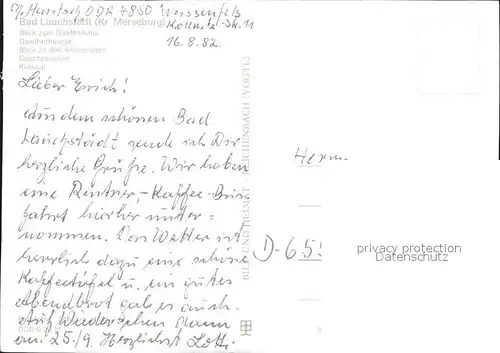 DDR 4850 Weissenfels
Bad Lauchstädt (Kr. Merseburg)
16.8.82
Goethetheater
Kursaal
Lieber Erich!
Aus dem schönen Bad
Lauchstädt sende ich Dir
herzliche Grüße. Wir haben
eine Rentner-Kaffee-Bus
fahrt hierher unter=
nommen. Das Wetter ist
herrlich dazu eine schöne
Kaffeetafel u. ein gutes
Abendbrot gab es auch.
Auf Wiedersehen dann
am 25/9. Herzlichst Lotte
BILD UND HEIMAT REICHENBACH (VOGTL)
Herrn
D-65!
privacy protection
Datenschutz